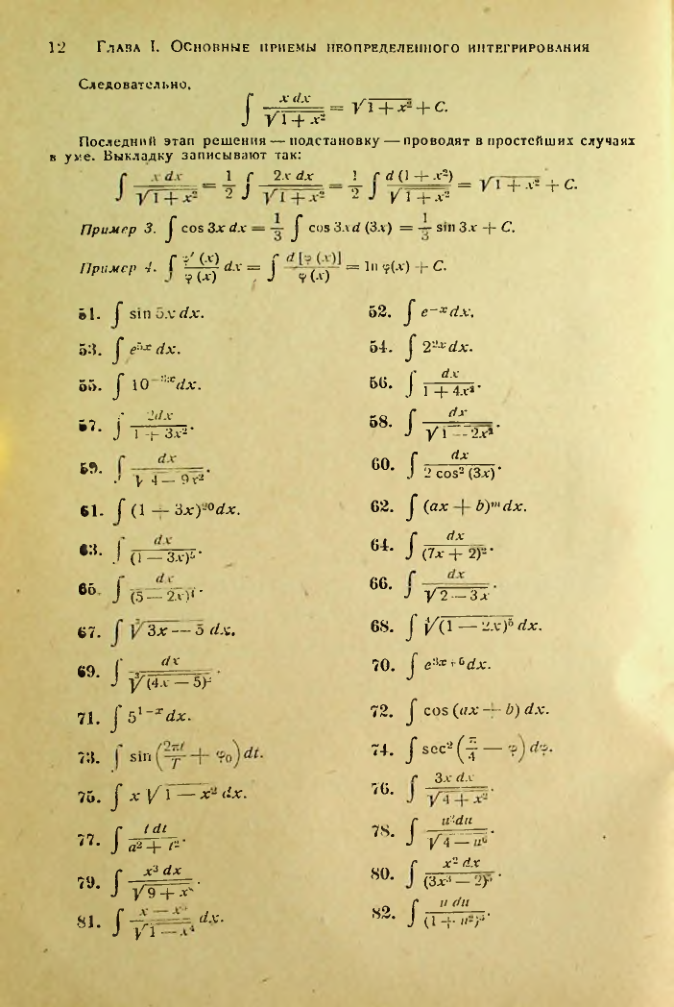 12 Глава I. Основные приемы неопределенного интегрирования
Следовательно,
∫ x dx / √(1 + x²) = √(1 + x²) + C.
Последний этап решения — подстановку — проводят в простейших случаях
в уме. Выкладку записывают так:
∫ x dx / √(1 + x²) = 1/2 ∫ 2x dx / √(1 + x²) = 1/2 ∫ d(1 + x²) / √(1 + x²) = √(1 + x²) + C.
Пример 3. ∫ cos 3x dx = 1/3 ∫ cos 3x d(3x) = 1/3 sin 3x + C.
Пример 4. ∫ φ′(x) / φ(x) dx = ∫ d[φ(x)] / φ(x) = ln φ(x) + C.
51. ∫ sin 5x dx. 52. ∫ e^(−x) dx.
53. ∫ e^(5x) dx. 54. ∫ 2^(2x) dx.
55. ∫ 10^(−3x) dx. 56. ∫ dx / (1 + 4x²).
57. ∫ 2dx / (1 + 3x²). 58. ∫ dx / √(1 − 2x²).
59. ∫ dx / √(4 − 9x²). 60. ∫ dx / (2 cos² (3x)).
61. ∫ (1 + 3x)²⁰ dx. 62. ∫ (ax + b)^m dx.
63. ∫ dx / (1 − 3x)⁵. 64. ∫ dx / (7x + 2)².
65. ∫ dx / (5 − 2x)⁴. 66. ∫ dx / √(2 − 3x).
67. ∫ √(3x − 5) dx. 68. ∫ √((1 − 2x)⁵) dx.
69. ∫ dx / ∛((4x − 5)²). 70. ∫ e^(3x+6) dx.
71. ∫ 5^(1−x) dx. 72. ∫ cos (ax + b) dx.
73. ∫ sin (2πt/T + φ₀) dt. 74. ∫ sec² (π/4 − φ) dφ.
75. ∫ x √(1 − x²) dx. 76. ∫ 3x dx / √(4 + x²).
77. ∫ t dt / (a² + t²). 78. ∫ u²du / √(4 − u⁶).
79. ∫ x³ dx / √(9 + x⁸). 80. ∫ x² dx / (3x³ − 2)⁵.
81. ∫ (x − x³) / √(1 − x⁴) dx. 82. ∫ u du / (1 + u²)³.